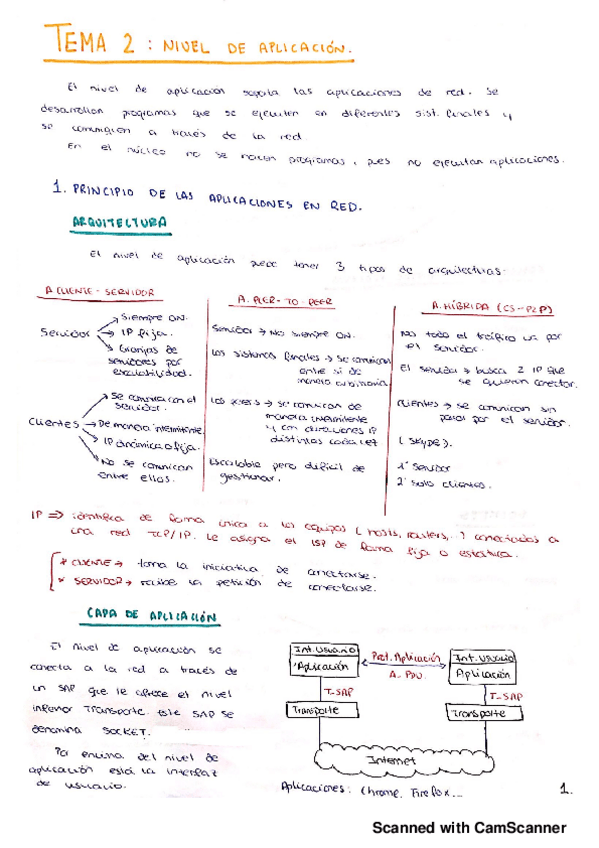 TEMA 2 : NIVEL DE APLICACIÓN.
El nivel de aplicación soporta las aplicaciones de red. Se
desarrollan programas que se ejecuten en diferentes sist. finales y
se comuniquen a través de la red.
En el núcleo no se hacen programas, pues no ejecutan aplicaciones.
1. PRINCIPIO DE LAS APLICACIONES EN RED.
ARQUITECTURA
El nivel de aplicación puede tener 3 tipos de arquitecturas:
A CLIENTE-SERVIDOR
Servidor → Siempre ON.
→ IP fija.
→ Granjas de
servidores por
escalabilidad.
Clientes → Se comunican con el
servidor.
→ De manera intermitente
→ IP dinámica o fija.
→ No se comunican
entre ellos.
A. PEER-TO-PEER
Servidor → No siempre ON.
Los sistemas finales → se comunican
entre si de
manera arbitraria
Los peers → se comunican de
manera intermitente
y con direcciones IP
distintas cada vez
Escalable pero difícil de
gestionar.
A. HÍBRIDA (CS-P2P)
No todo el tráfico va por
el servidor.
El servidor → busca 2 IP que
se quieren conectar.
Clientes → se comunican sin
pasar por el servidor.
(SKYPE).
1º servidor
2º solo clientes.
IP => identifica de forma única a los equipos (hosts, routers,...) conectados a
una red TCP/IP. Le asigna el ISP de forma fija o estática.
* CLIENTE → toma la iniciativa de conectarse.
* SERVIDOR → recibe la petición de conectarse.
CAPA DE APLICACIÓN
El nivel de aplicación se
conecta a la red a través de
un SAP que le ofrece el nivel
inferior Transporte. Este SAP se
denomina SOCKET.
Por encima del nivel de
aplicación está la interfaz
de usuario.
Int. Usuario
Aplicación
Prot. Aplicación
A. PDU.
Int. Usuario
Aplicación
T-SAP
T-SAP
Transporte
Transporte
Internet
Aplicaciones: Chrome, Firefox...
1.
Scanned with CamScanner